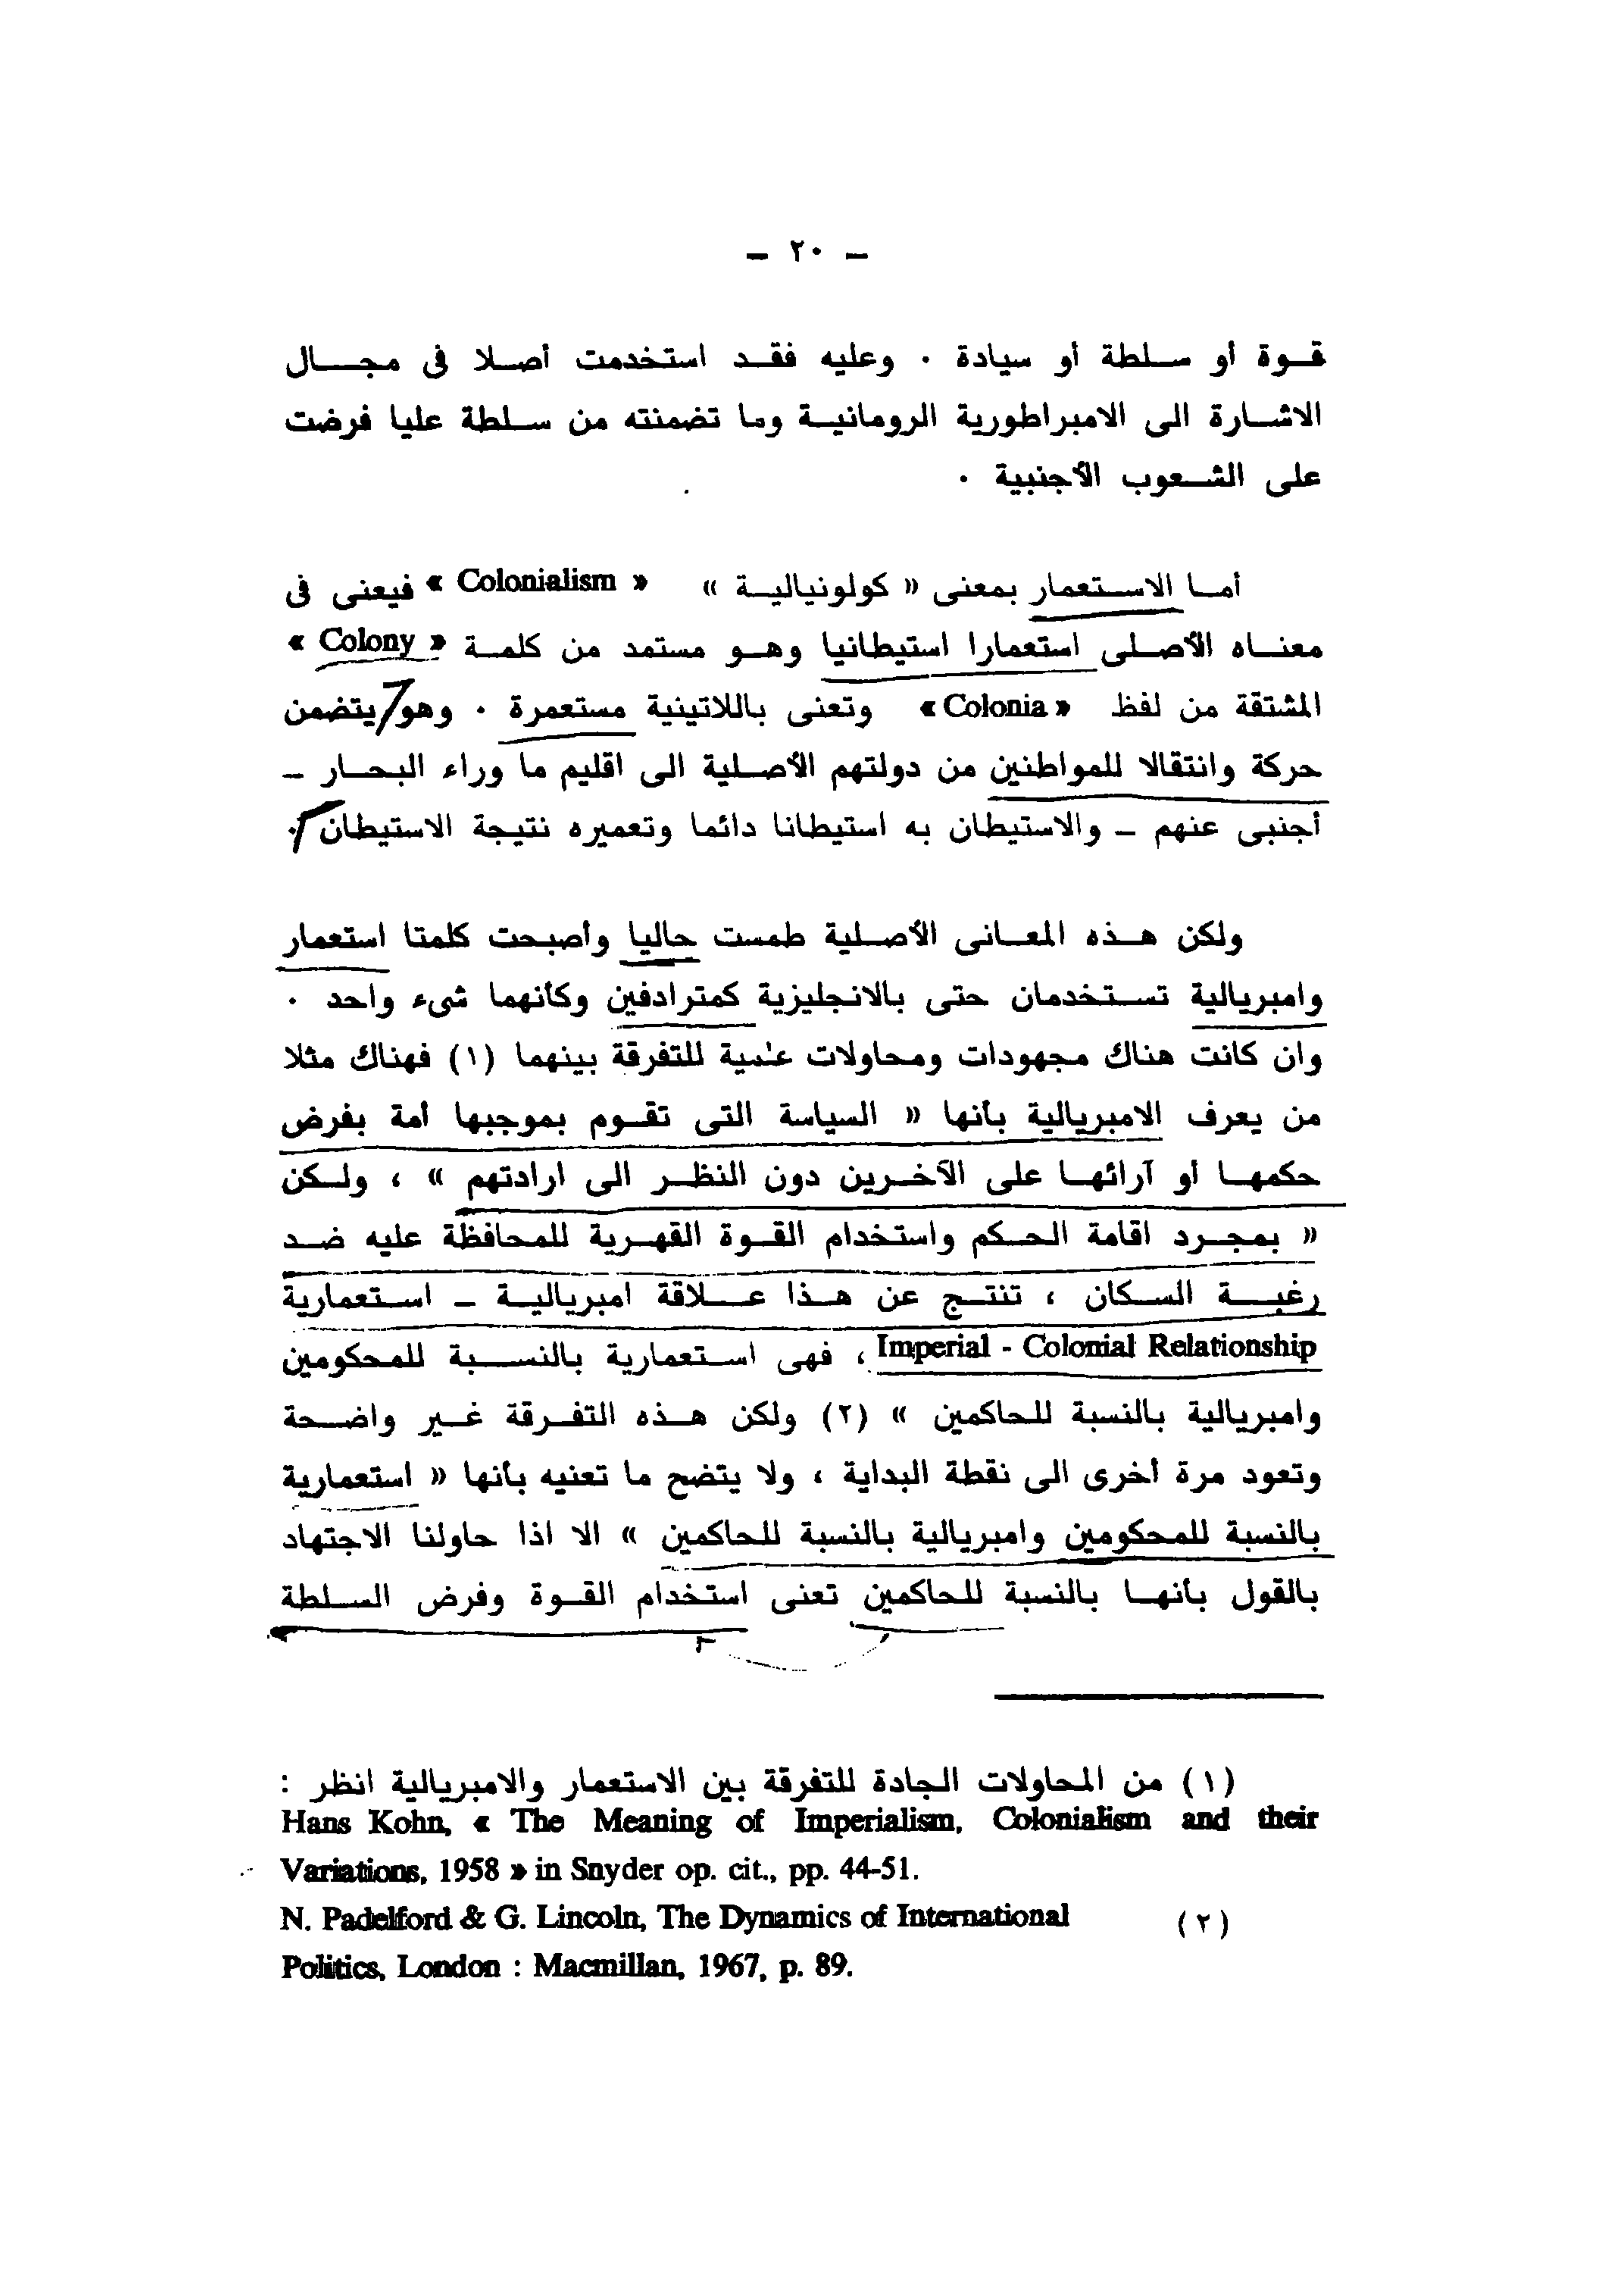 — ٢٠ —
قوة أو سلطة أو سيادة . وعليه فقد استخدمت أصلا فى مجال
الاشارة الى الامبراطورية الرومانية وما تضمنته من سلطة عليا فرضت
على الشعوب الأجنبية .
أما الاستعمار بمعنى « كولونيالية » « Colonialism » فيعنى فى
معناه الأصلى استعمارا استيطانيا وهو مستمد من كلمة « Colony »
المشتقة من لفظ « Colonia » وتعنى باللاتينية مستعمرة . وهو يتضمن
حركة وانتقالا للمواطنين من دولتهم الأصلية الى اقليم ما وراء البحار —
أجنبى عنهم — والاستيطان به استيطانا دائما وتعميره نتيجة الاستيطان .
ولكن هذه المعانى الأصلية طمست حاليا وأصبحت كلمتا استعمار
وامبريالية تستخدمان حتى بالانجليزية كمترادفين وكأنهما شىء واحد .
وان كانت هناك مجهودات ومحاولات علمية للتفرقة بينهما (١) فهناك مثلا
من يعرف الامبريالية بأنها « السياسة التى تقوم بموجبها أمة بفرض
حكمها أو آرائها على الآخرين دون النظر الى ارادتهم » ، ولكن
« بمجرد اقامة الحكم واستخدام القوة القهرية للمحافظة عليه ضد
رغبة السكان ، تنتج عن هذا علاقة امبريالية — استعمارية
Imperial - Colonial Relationship ، فهى استعمارية بالنسبة للمحكومين
وامبريالية بالنسبة للحاكمين » (٢) ولكن هذه التفرقة غير واضحة
وتعود مرة أخرى الى نقطة البداية ، ولا يتضح ما تعنيه بأنها « استعمارية
بالنسبة للمحكومين وامبريالية بالنسبة للحاكمين » الا اذا حاولنا الاجتهاد
بالقول بأنها بالنسبة للحاكمين تعنى استخدام القوة وفرض السلطة
(١) من المحاولات الجادة للتفرقة بين الاستعمار والامبريالية انظر :
Hans Kohn, « The Meaning of Imperialism, Colonialism and their
Variations, 1958 » in Snyder op. cit., pp. 44-51.
N. Padelford & G. Lincoln, The Dynamics of International (٢)
Politics, London : Macmillan, 1967, p. 89.